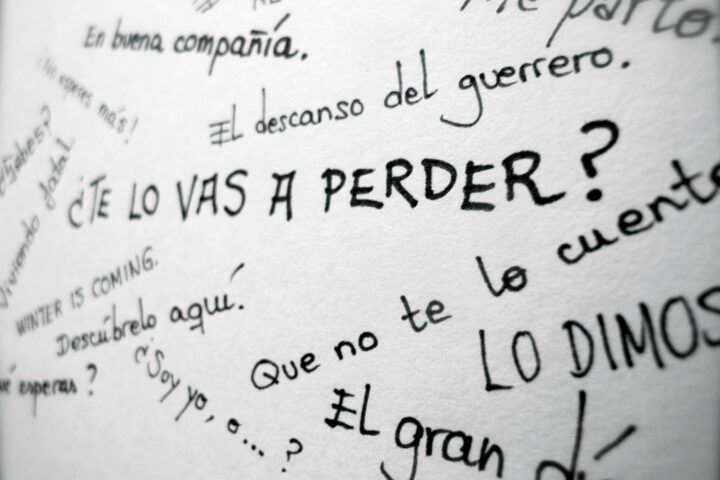 Me parto.
En buena compañía.
¡No esperes más!
El descanso del guerrero.
¿Sabes?
¿TE LO VAS A PERDER?
Viviendo
WINTER IS COMING.
Descúbrelo aquí.
Que no te lo cuente
LO DIMOS
esperas?
¿Soy yo, o...?
El gran